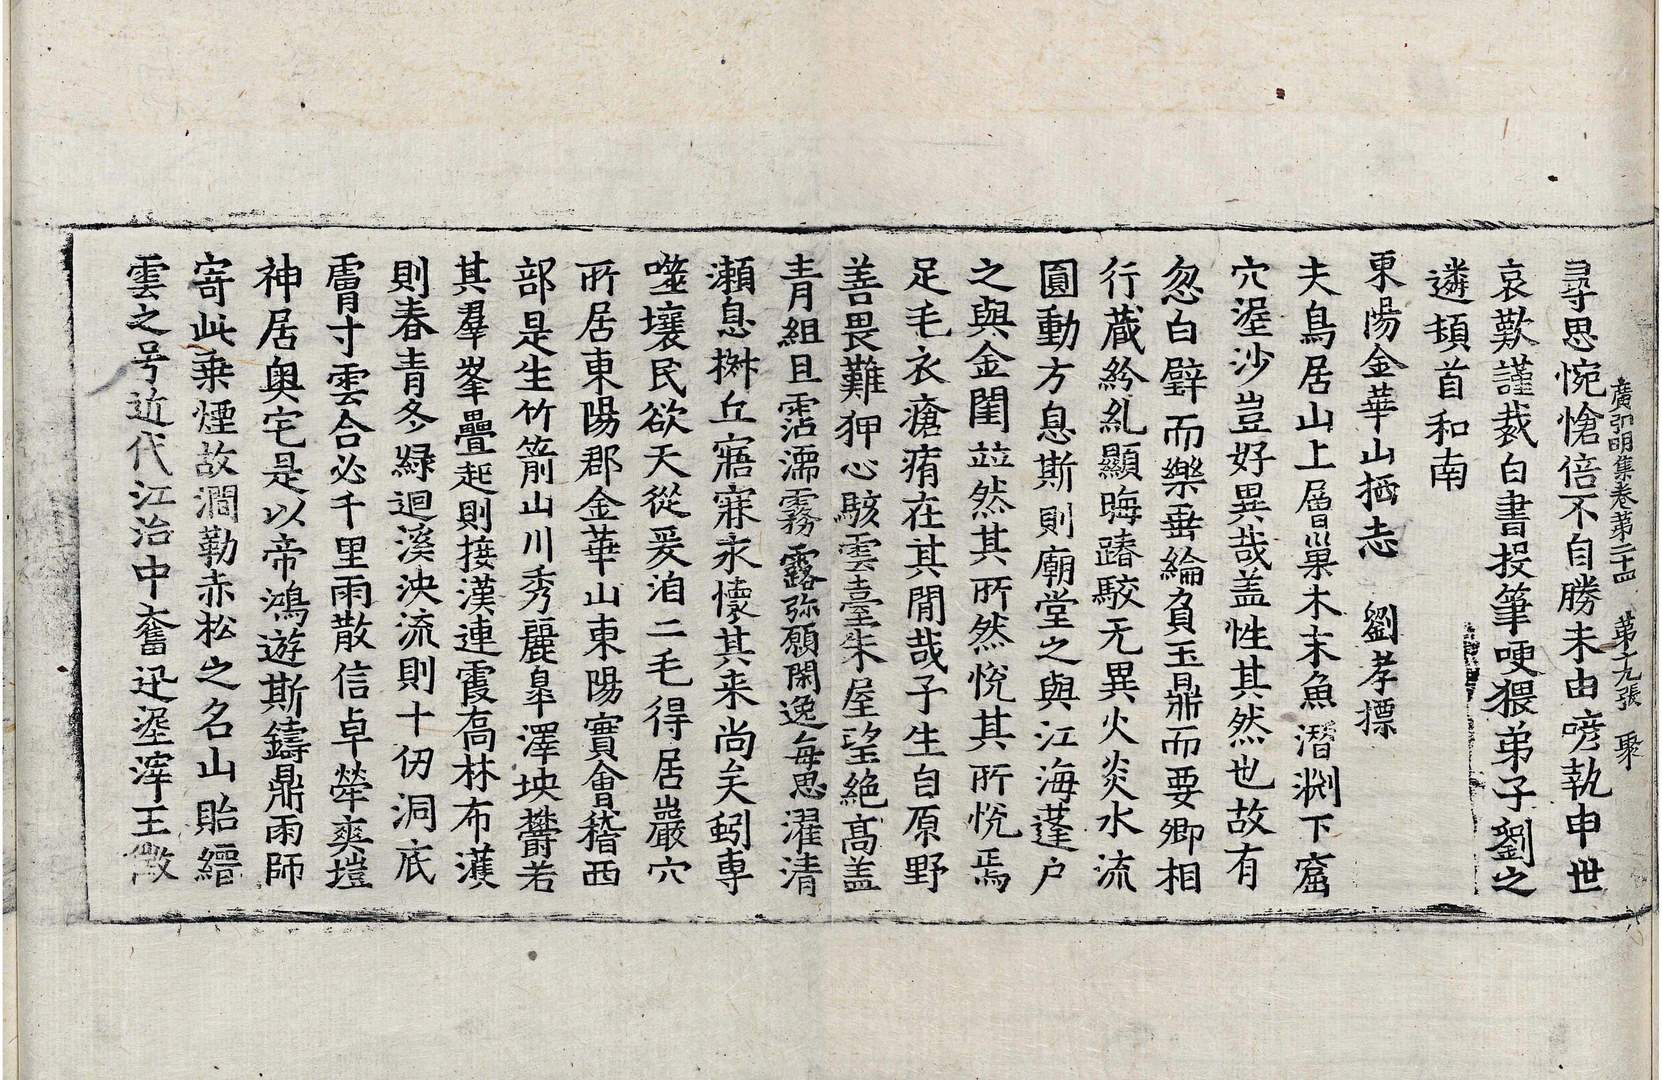 廣弘明集卷第二十四　第十九張　聚
尋思惋愴倍不自勝未由嗙執申世
哀歎謹裁白書投筆哽猥弟子劉之
遴頓首和南
東陽金華山栖志　劉孝標
夫鳥居山上層巢木末魚潛渊下窟
穴渥沙豈好異哉盖性其然也故有
忽白璧而樂垂綸負玉鼎而要卿相
行藏紛糺顯晦踳駮无異火炎水流
圓動方息斯則廟堂之與江海蓬户
之與金閨並然其所然悅其所悅焉
足毛衣瘡痏在其閒哉子生自原野
善畏難狎心駭雲臺朱屋望絶髙盖
青組且霑濡霧露弥願閑逸每思濯清
瀬息椒丘寤寐永懷其来尚矣蚓専
噬壤民欲天從爰洎二毛得居巖穴
所居東陽郡金華山東陽實會稽西
部是生竹箭山川秀麗皐澤坱鬱若
其羣峯疊起則接漢連霞喬林布濩
則春青冬緑迴溪泱流則十仞洞底
膚寸雲合必千里雨散信卓犖爽塏
神居奥宅是以帝鴻遊斯鑄鼎雨師
寄此乗煙故澗勒赤松之名山貽縉
雲之号近代江治中奮迅遅滓王徴